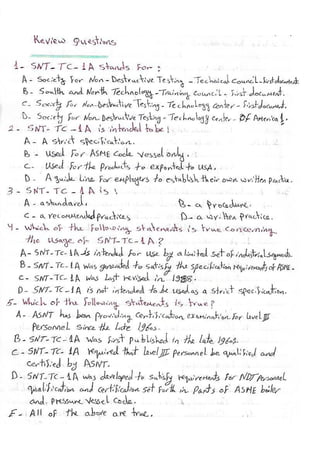 Review Questions
1- SNT-TC-1A stands for:
A- Society For Non-Destructive Testing - Technical Council - first document.
B- South and North Technology - Training Council - first document.
C- Society For Non-Destructive Testing - Technology center - First document.
D. Society For Non-Destructive Testing - Technology center - Of America 1.
2- SNT-TC-1A is intended to be:
A- A strict specification.
B- Used For ASME Code vessel only.
C- Used for the Products to exported to USA.
D. A guide line For employers to establish their own written
3- SNT-TC-1A is:
A- a standard. B- a Procedure.
C- a recommended practices D- a written Practice.
4- which of the following statements is true concerning
the usage of SNT-TC-1A?
A- SNT-TC-1A is intended for use by a limited set of industrial segments.
B- SNT-TC-1A was generated to satisfy the specification requirements of ASME.
C- SNT-TC-1A was last revised in 1988.
D- SNT-TC-1A is not intended to be used as a strict specification.
5- Which of the Following statements is true?
A- ASNT has been Providing certification examination for level III
Personnel since the late 1960s.
B- SNT-TC-1A was first published in the late 1960s.
C- SNT-TC-1A required that level III Personnel be qualified and
certified by ASNT.
D- SNT-TC-1A was developed to satisfy requirements for NDT Personnel
qualification and certification set forth in Parts of ASME boiler
and Pressure vessel Code.
E- All of the above are true.